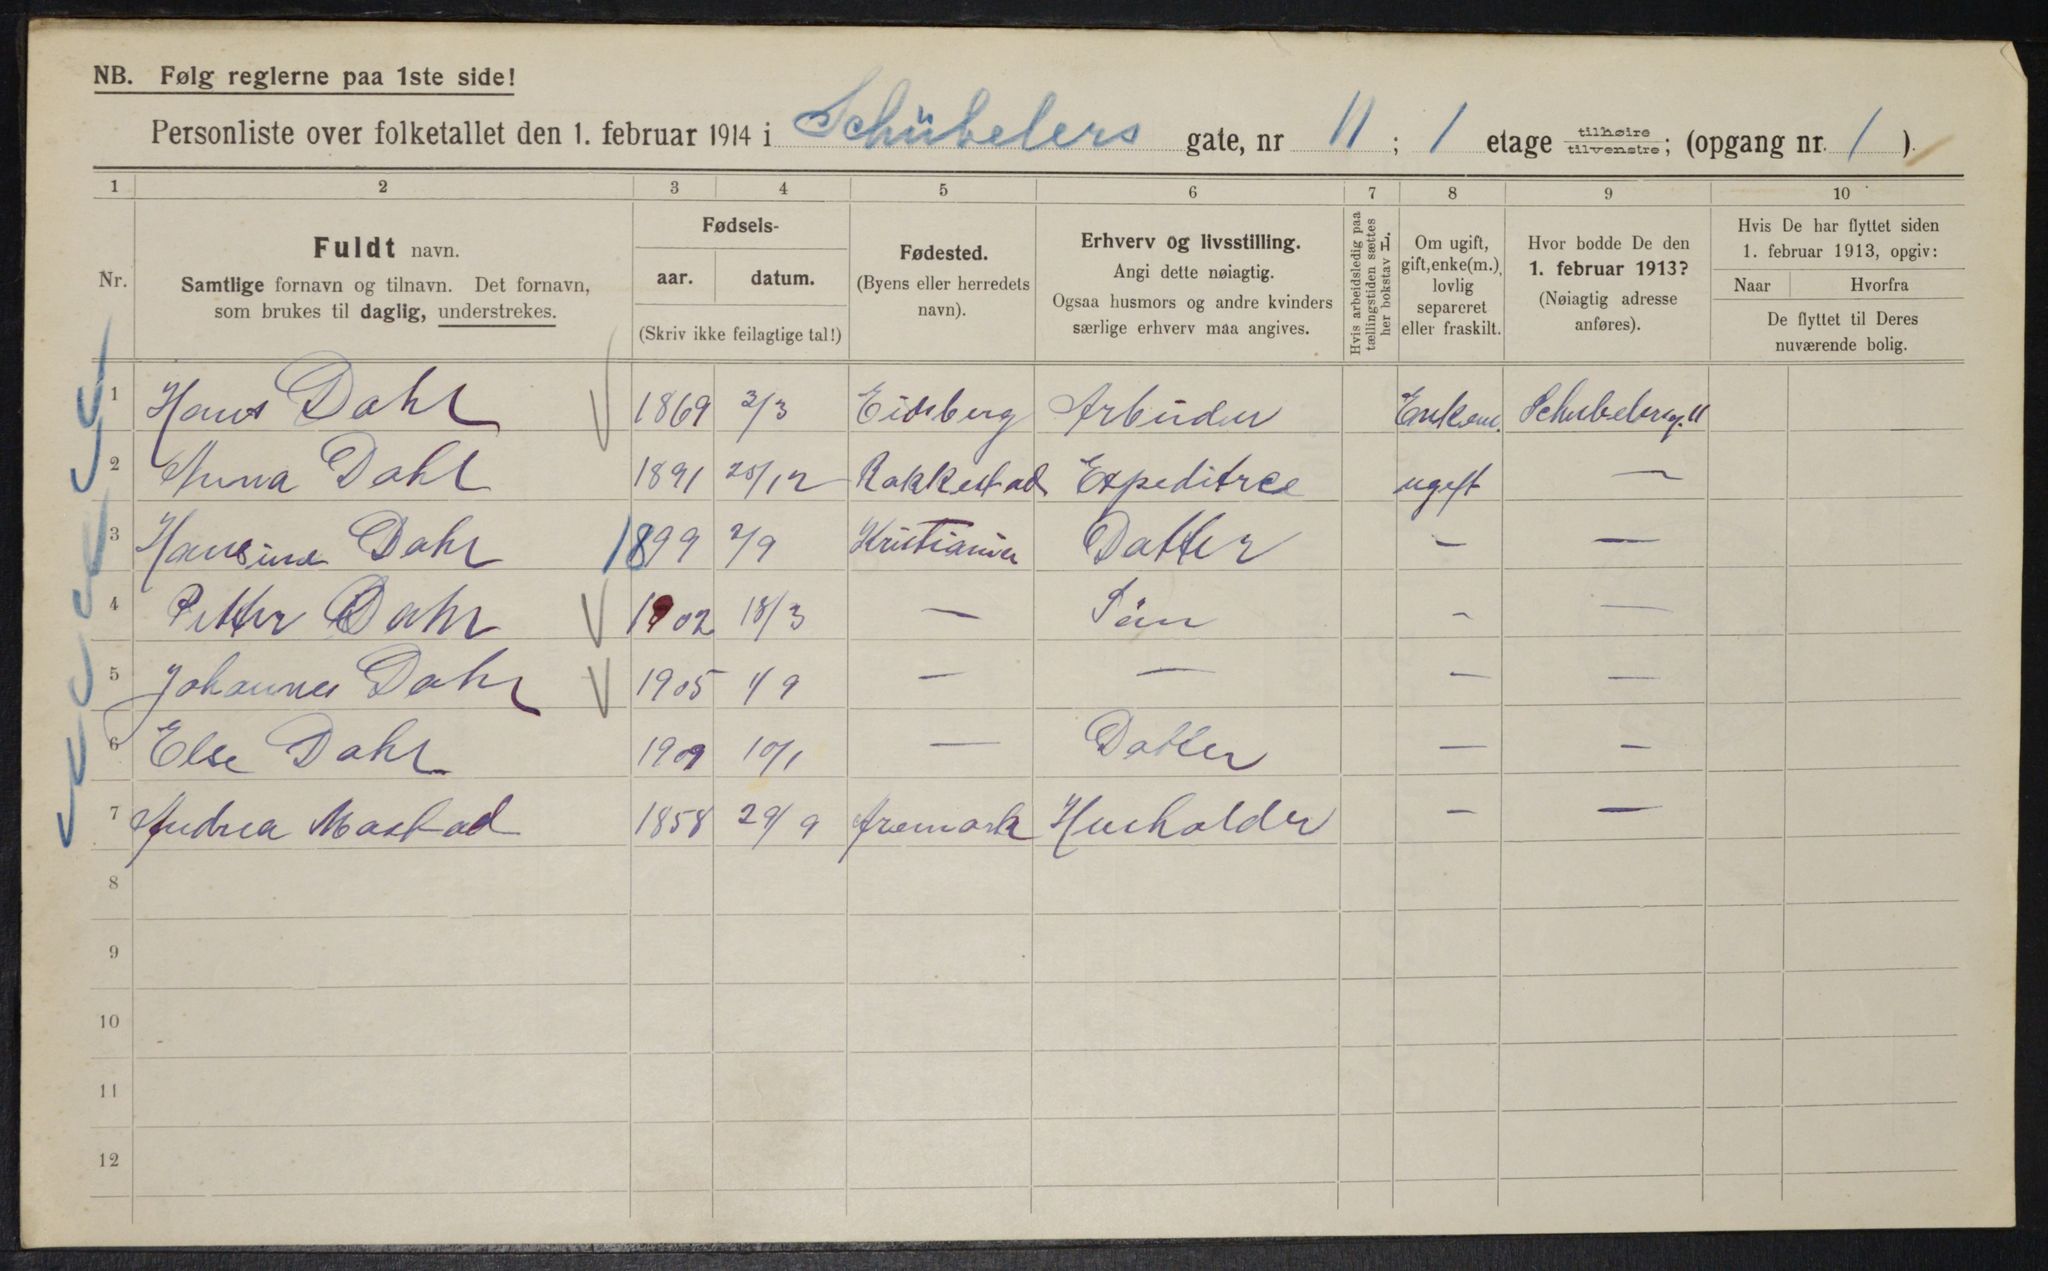 NB. Følg reglerne paa 1ste side!
Personliste over folketallet den 1. februar 1914 i Schübelers gate, nr 11 ; 1 etage tilhøire tilvenstre ; (opgang nr. 1 ).
1 2 3 4 5 6 7 8 9 10
Nr.
Fuldt navn.
Samtlige fornavn og tilnavn. Det fornavn,
som brukes til daglig, understrekes.
Fødsels-
aar. datum.
(Skriv ikke feilagtige tal!)
Fødested.
(Byens eller herredets
navn).
Erhverv og livsstilling.
Angi dette nøiagtig.
Ogsaa husmors og andre kvinders
særlige erhverv maa angives.
Hvis arbeidsledig paa
tællingstiden sættes
her bokstav L.
Om ugift,
gift, enke(m.),
lovlig
separeret
eller fraskilt.
Hvor bodde De den
1. februar 1913?
(Nøiagtig adresse
anføres).
Hvis De har flyttet siden
1. februar 1913, opgiv:
Naar Hvorfra
De flyttet til Deres
nuværende bolig.
1 Hans Dahl 1869 2/3 Eidsberg Arbeider Enkem. Schubelersg. 11
2 Anna Dahl 1891 25/12 Rakkestad Expeditrce ugift —
3 Hansine Dahl 1899 2/9 Kristiania Datter — —
4 Petter Dahl 1902 18/3 — Sön — —
5 Johannes Dahl 1905 1/9 — — — —
6 Else Dahl 1909 10/1 — Datter — —
7 Andrea Mastad 1858 29/9 Aremark Husholder — —
8
9
10
11
12